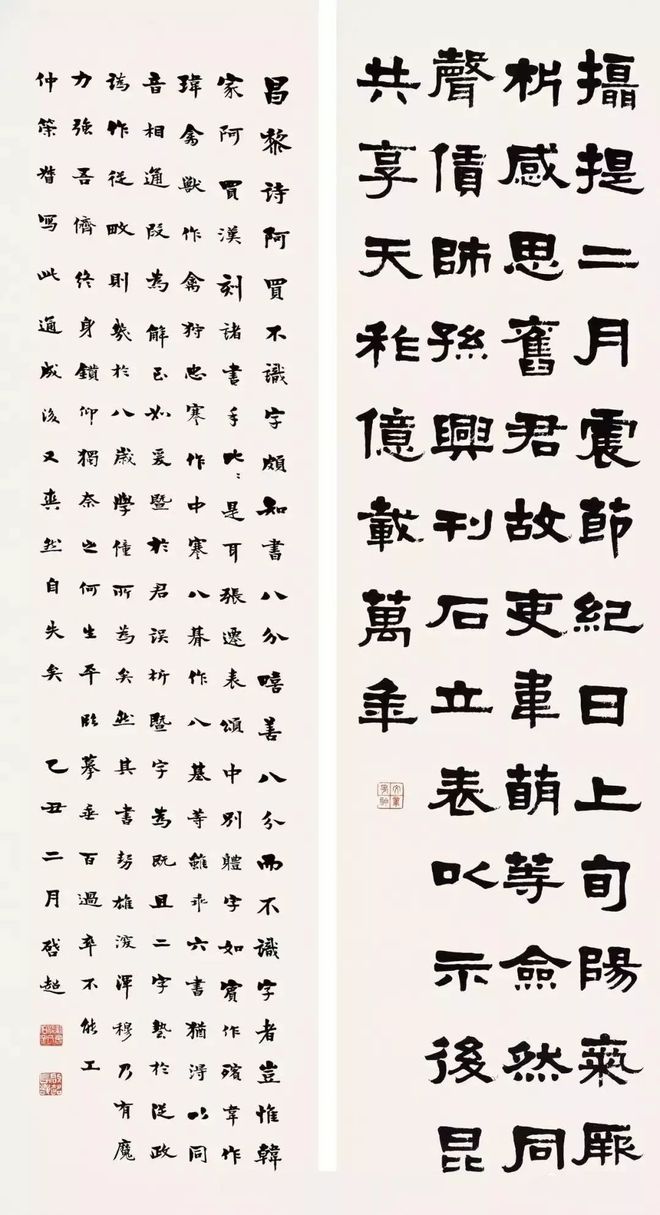 攝提二月震節紀日上旬陽氣厥
析感思舊君故吏韋萌等僉然同
聲賃師孫興刊石立表以示後昆
共享天祚億載萬年
昌黎詩阿買不識字頗知書八分嘻善八分而不識字者豈惟韓
家阿買漢刻諸書手比〻是耳張遷表頌中別體字如賓作殯韋作
瑋禽獸作禽狩忠寒作中寒八朞作八基等雖乖六書猶得以同
音相通叚為解已如爰暨於君誤析暨字為既且二字藝於從政
譌作從畋則幾於八歲學僮所為矣然其書勢雄深渾穆乃有魔
力強吾儕終身鑽仰獨奈之何生平臨摹垂百過卒不能工
仲策督寫此通成後又爽然自失矣 乙丑二月啓超